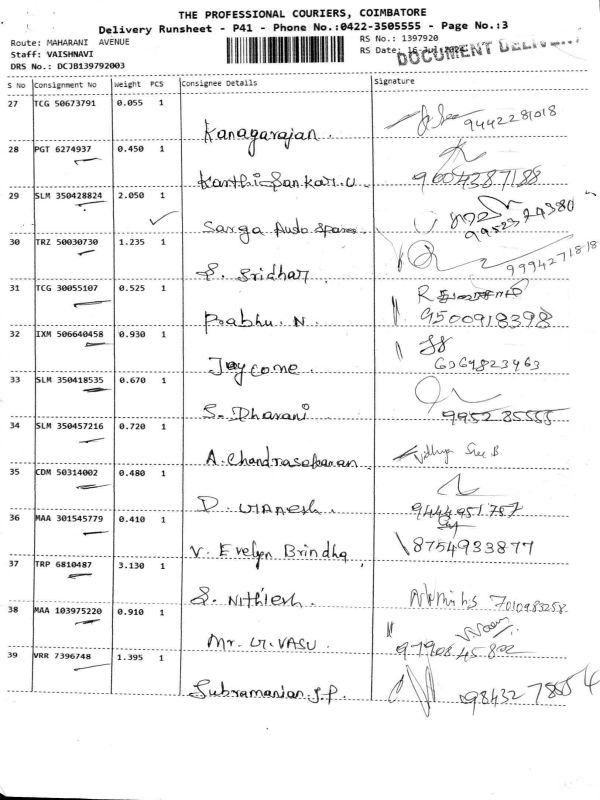 THE PROFESSIONAL COURIERS, COIMBATORE
Delivery Runsheet - P41 - Phone No.:0422-3505555 - Page No.:3
Route: MAHARANI AVENUE
RS No.: 1397920
Staff: VAISHNAVI
RS Date: 16-Jul
DOCUMENT DELIVERY
DRS No.: DCJB139792003
S No Consignment No Weight PCS Consignee Details Signature
27 TCG 50673791 0.055 1
Kanagarajan. 9442281018
28 PGT 6274937 0.450 1
Karthi Sankar.U. 9604387188
29 SLM 350428824 2.050 1
Sarga Auto Spares
30 TRZ 50030730 1.235 1
S. Sridhar 9994271818
31 TCG 30055107 0.525 1
Prabhu.N. 9500918398
32 IXM 506640458 0.930 1
Joycome 6369823463
33 SLM 350418535 0.670 1
S. Dharani
34 SLM 350457216 0.720 1
A. Chandrasekaran Vidhya Sree B
35 CDM 50314002 0.480 1
D. 9444951757
36 MAA 301545779 0.410 1
V. Evelyn Brindha 8754933877
37 TRP 6810487 3.130 1
S. Nithiesh. 7010983258
38 MAA 103975220 0.910 1
Mr. VASU. 9790845802
39 VRR 7396748 1.395 1
Subramanian.S.P.